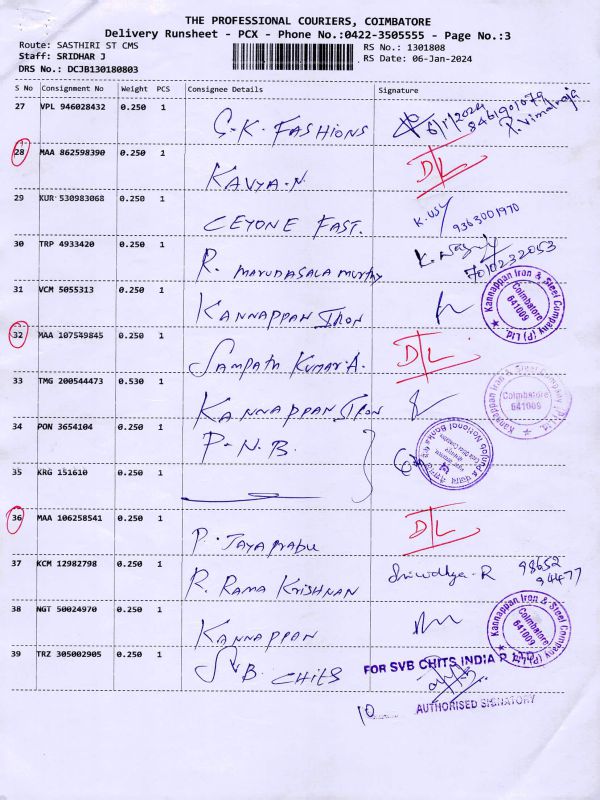 THE PROFESSIONAL COURIERS, COIMBATORE
Delivery Runsheet - PCX - Phone No.:0422-3505555 - Page No.:3
Route: SASTHIRI ST CMS RS No.: 1301808
Staff: SRIDHAR J RS Date: 06-Jan-2024
DRS No.: DCJB130180803
S No Consignment No Weight PCS Consignee Details Signature
27 VPL 946028432 0.250 1 G.K. FASHIONS 6/1/2024 8461901079 P. Vimalraja
28 MAA 862598390 0.250 1 KAVYA.N DTL
29 KUR 530983068 0.250 1 CEYONE FAST. K. usy 9363001970
30 TRP 4933420 0.250 1 R. MARUDASALA MURTHY 7010232053
31 VCM 5055313 0.250 1 KANNAPPAN IRON Kannappan Iron & Steel Company (P) Ltd. Coimbatore 641009
32 MAA 107549845 0.250 1 SAMPATH KUMAR.A. DTL
33 TMG 200544473 0.530 1 KANNAPPAN IRON Kannappan Iron & Steel Company (P) Ltd. Coimbatore 641009
34 PON 3654104 0.250 1 P.N.B.
35 KRG 151610 0.250 1
36 MAA 106258541 0.250 1 P. JAYAPRABU DTL
37 KCM 12982798 0.250 1 R. RAMA KRISHNAN R 98652 94477
38 NGT 50024970 0.250 1 KANNAPPAN Kannappan Iron & Steel Company (P) Ltd. Coimbatore 641009
39 TRZ 305002905 0.250 1 SVB. CHITS FOR SVB CHITS INDIA P. LTD.
10 AUTHORISED SIGNATORY